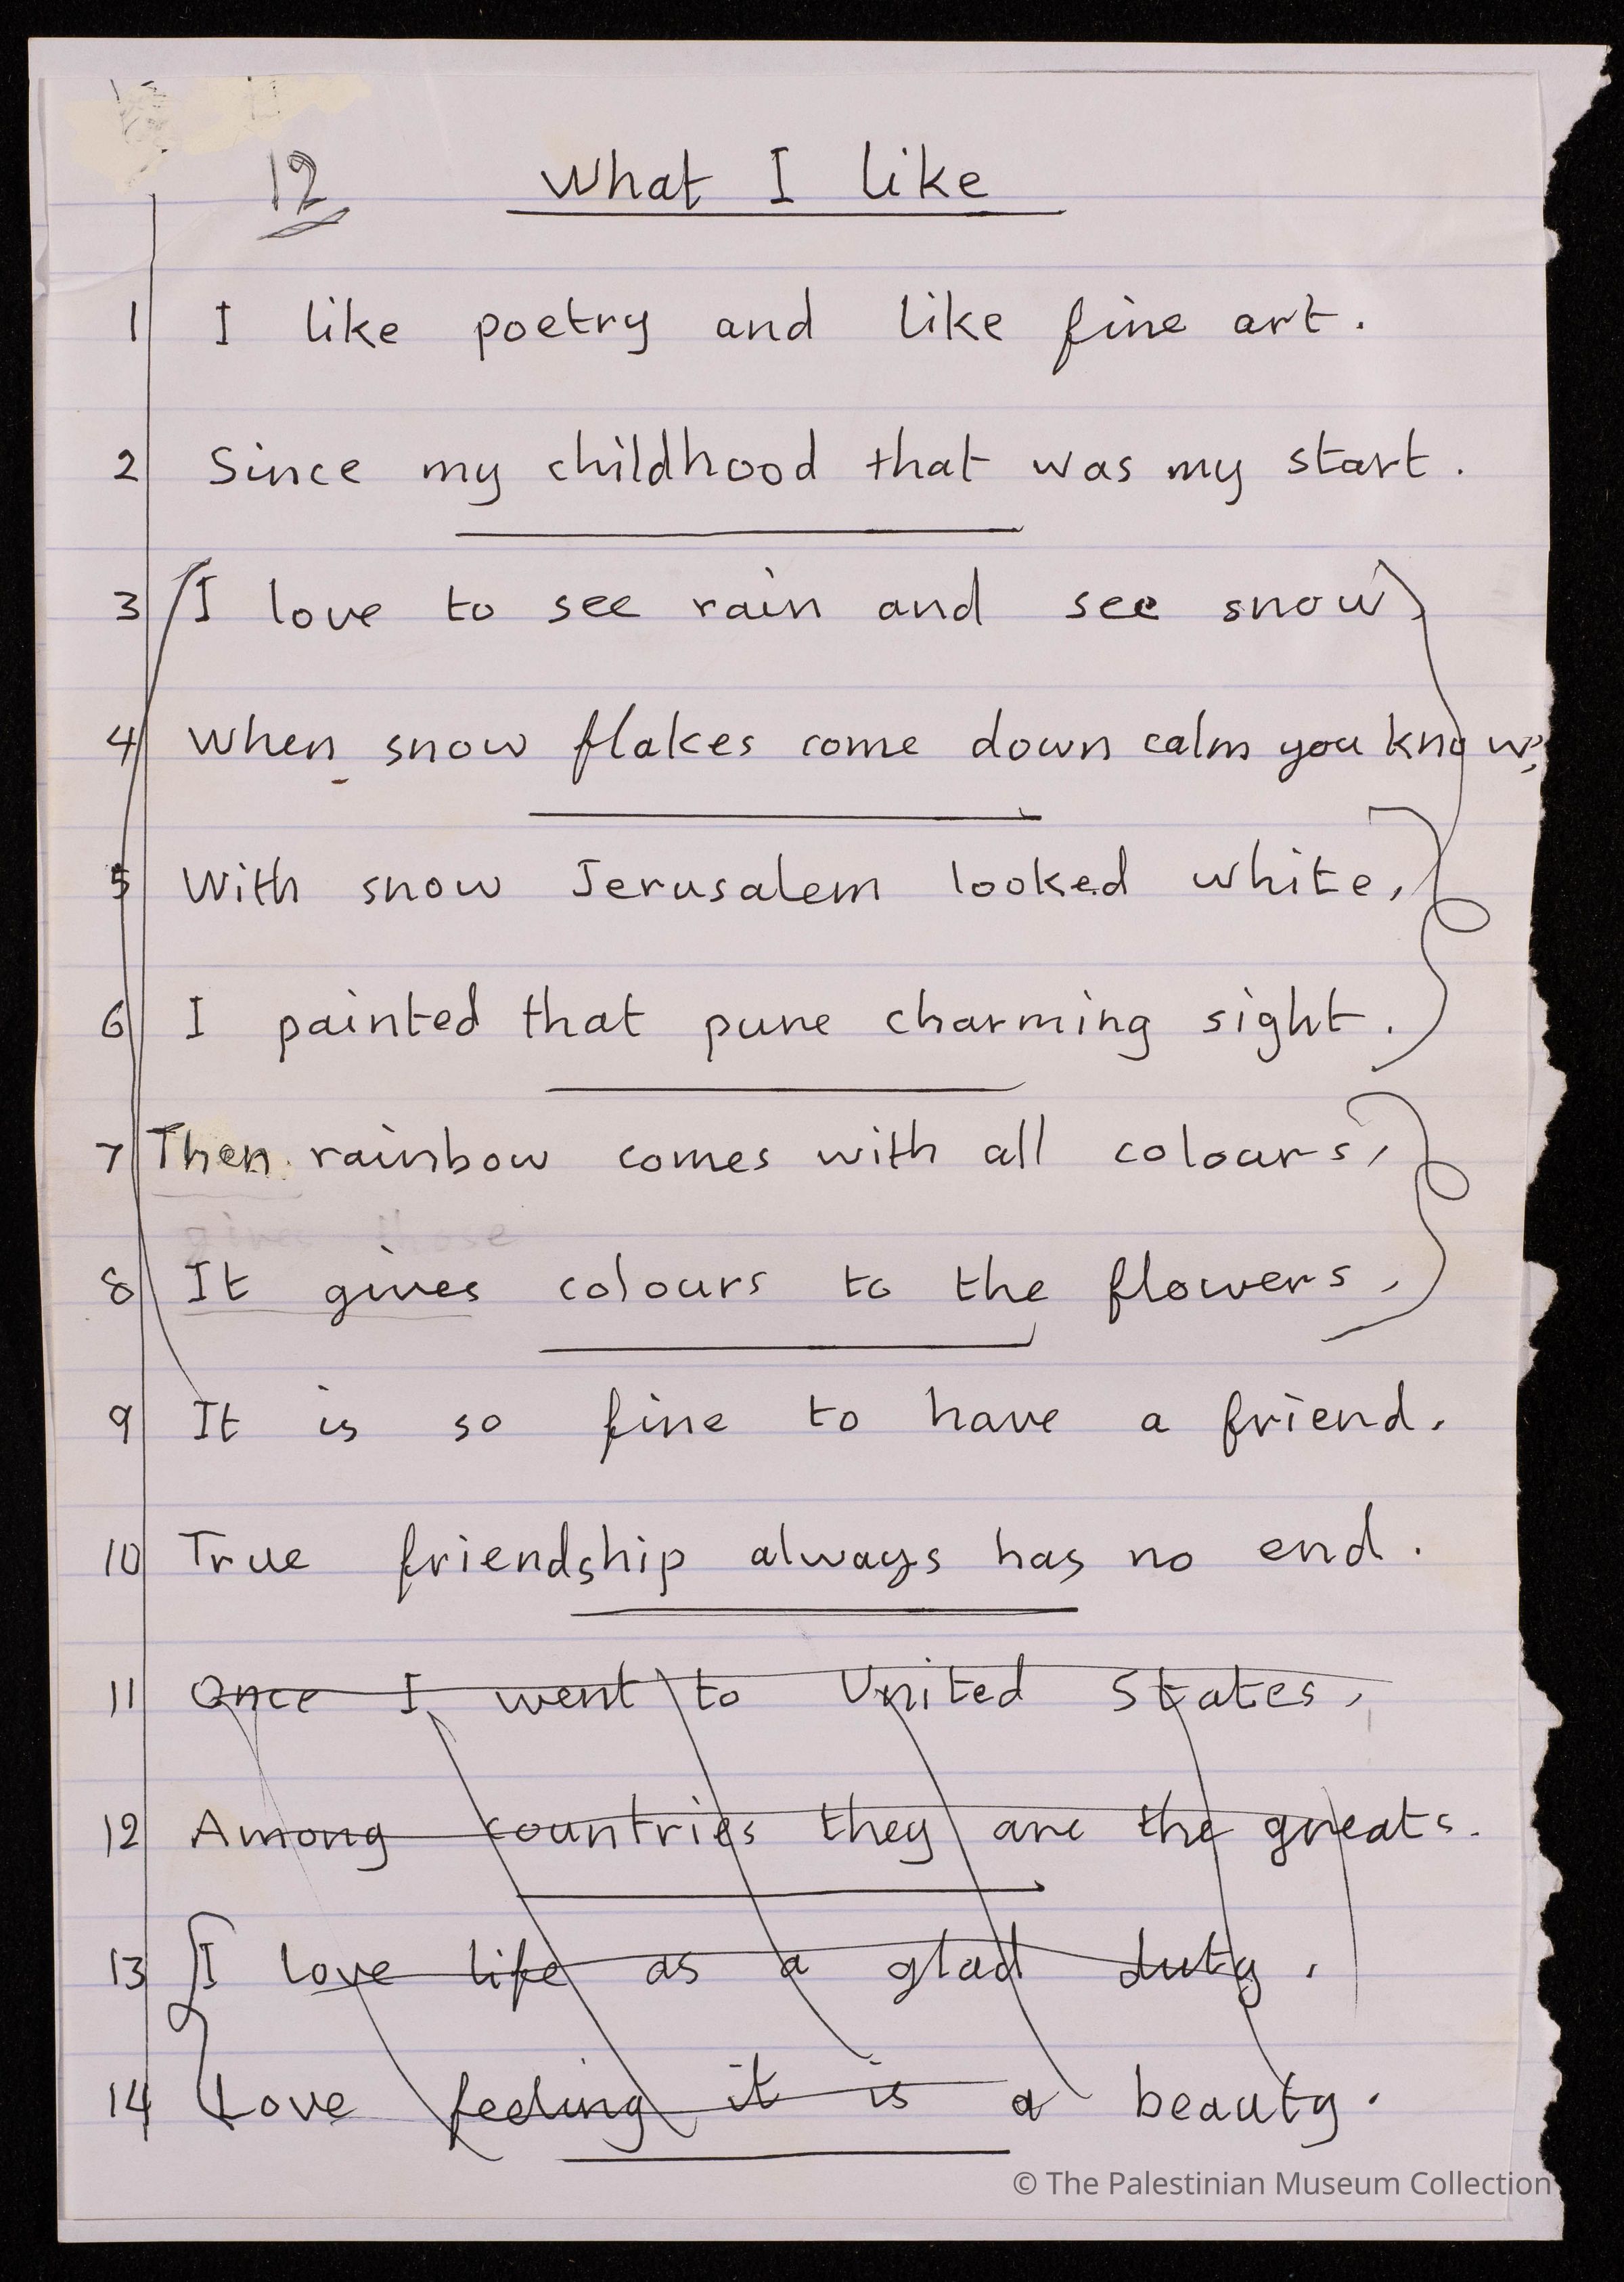 12 What I like
1 I like poetry and like fine art.
2 Since my childhood that was my start.
3 I love to see rain and see snow,
4 when snow flakes come down calm you know,
5 With snow Jerusalem looked white,
6 I painted that pure charming sight.
7 Then rainbow comes with all colours,
gives those
8 It gives colours to the flowers,
9 It is so fine to have a friend.
10 True friendship always has no end.
11 Once I went to United States,
12 Among countries they are the greats.
13 I love life as a glad duty.
14 Love feeling it is a beauty.
© The Palestinian Museum Collection